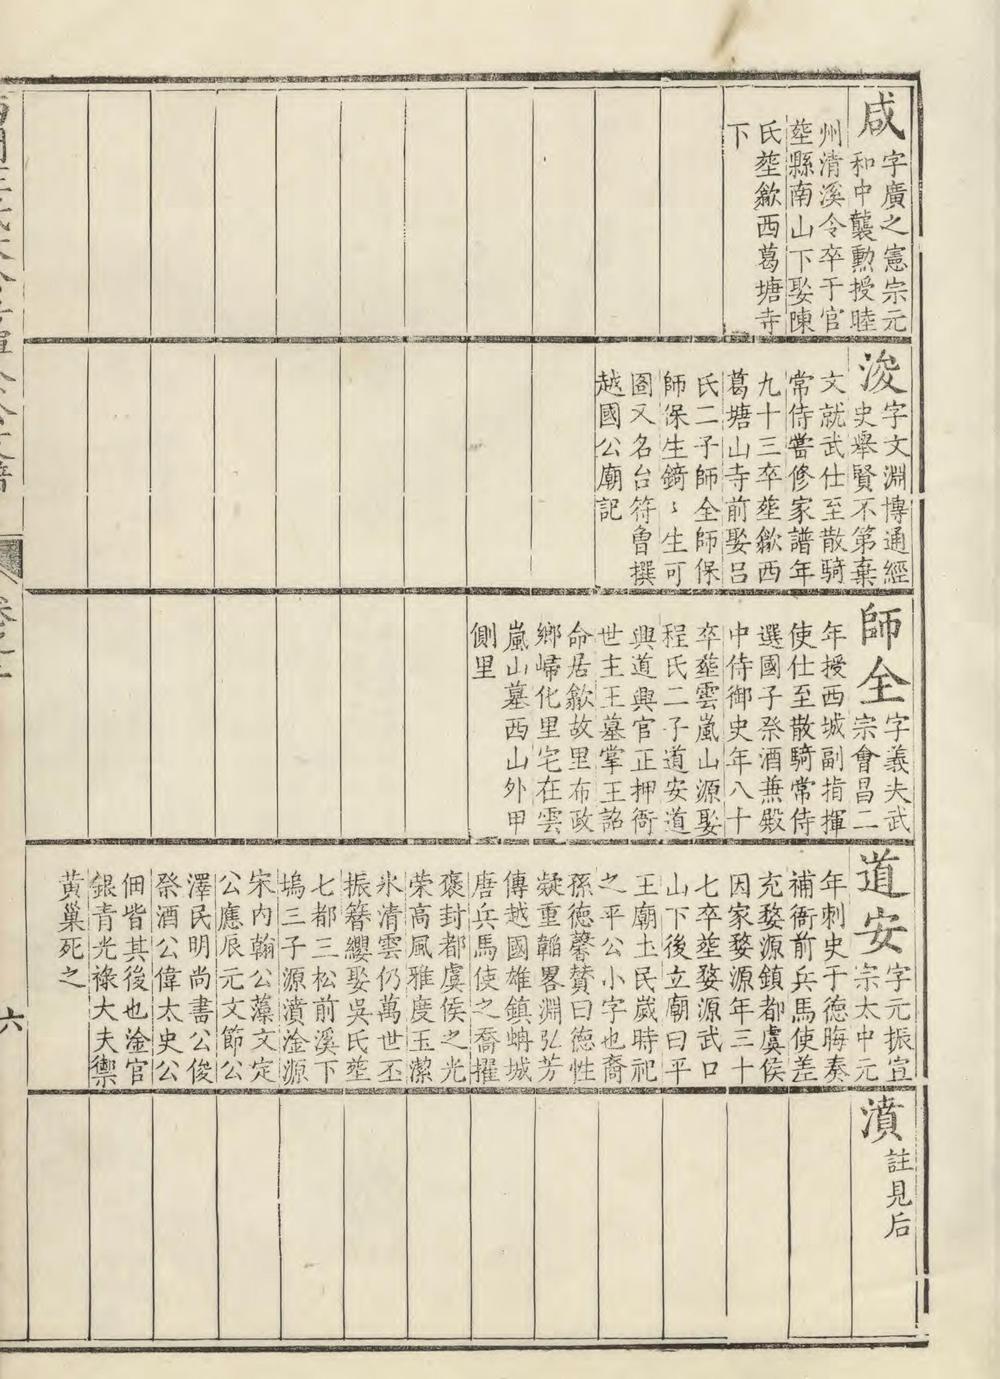 咸
字廣之憲宗元
和中襲勲授睦
州清溪令卒于官
塟縣南山下娶陳
氏塟歙西葛塘寺
下
浚
字文淵博通經
史舉賢不第棄
文就武仕至散騎
常侍嘗修家譜年
九十三卒塟歙西
葛塘山寺前娶吕
氏二子師全師保
師保生錡〻生可
圅又名台符魯撰
越國公廟記
師全
字義夫武
宗會昌二
年授西城副指揮
使仕至散騎常侍
選國子祭酒兼殿
中侍御史年八十
卒塟雲嵐山源娶
程氏二子道安道
興道興官正押衙
世主王墓掌王誥
命居歙故里布政
鄉歸化里宅在雲
嵐山墓西山外甲
側里
道安
字元振宣
宗太中元
年刺史于德晦奏
補衙前兵馬使差
充婺源鎮都虞侯
因家婺源年三十
七卒塟婺源武口
山下後立廟曰平
王廟土民歲時祀
之平公小字也裔
孫德馨賛曰德性
凝重韜畧淵弘芳
傳越國雄鎮蚺城
唐兵馬使之喬擢
褒封都虞侯之光
榮高風雅度玉潔
氷清雲仍萬世丕
振簪纓娶吳氏塟
七都三松前溪下
塢三子源濆淦源
宋内翰公藻文定
公應辰元文節公
澤民明尚書公俊
祭酒公偉太史公
佃皆其後也淦官
銀青光祿大夫禦
黄巢死之
濆
註見后
六